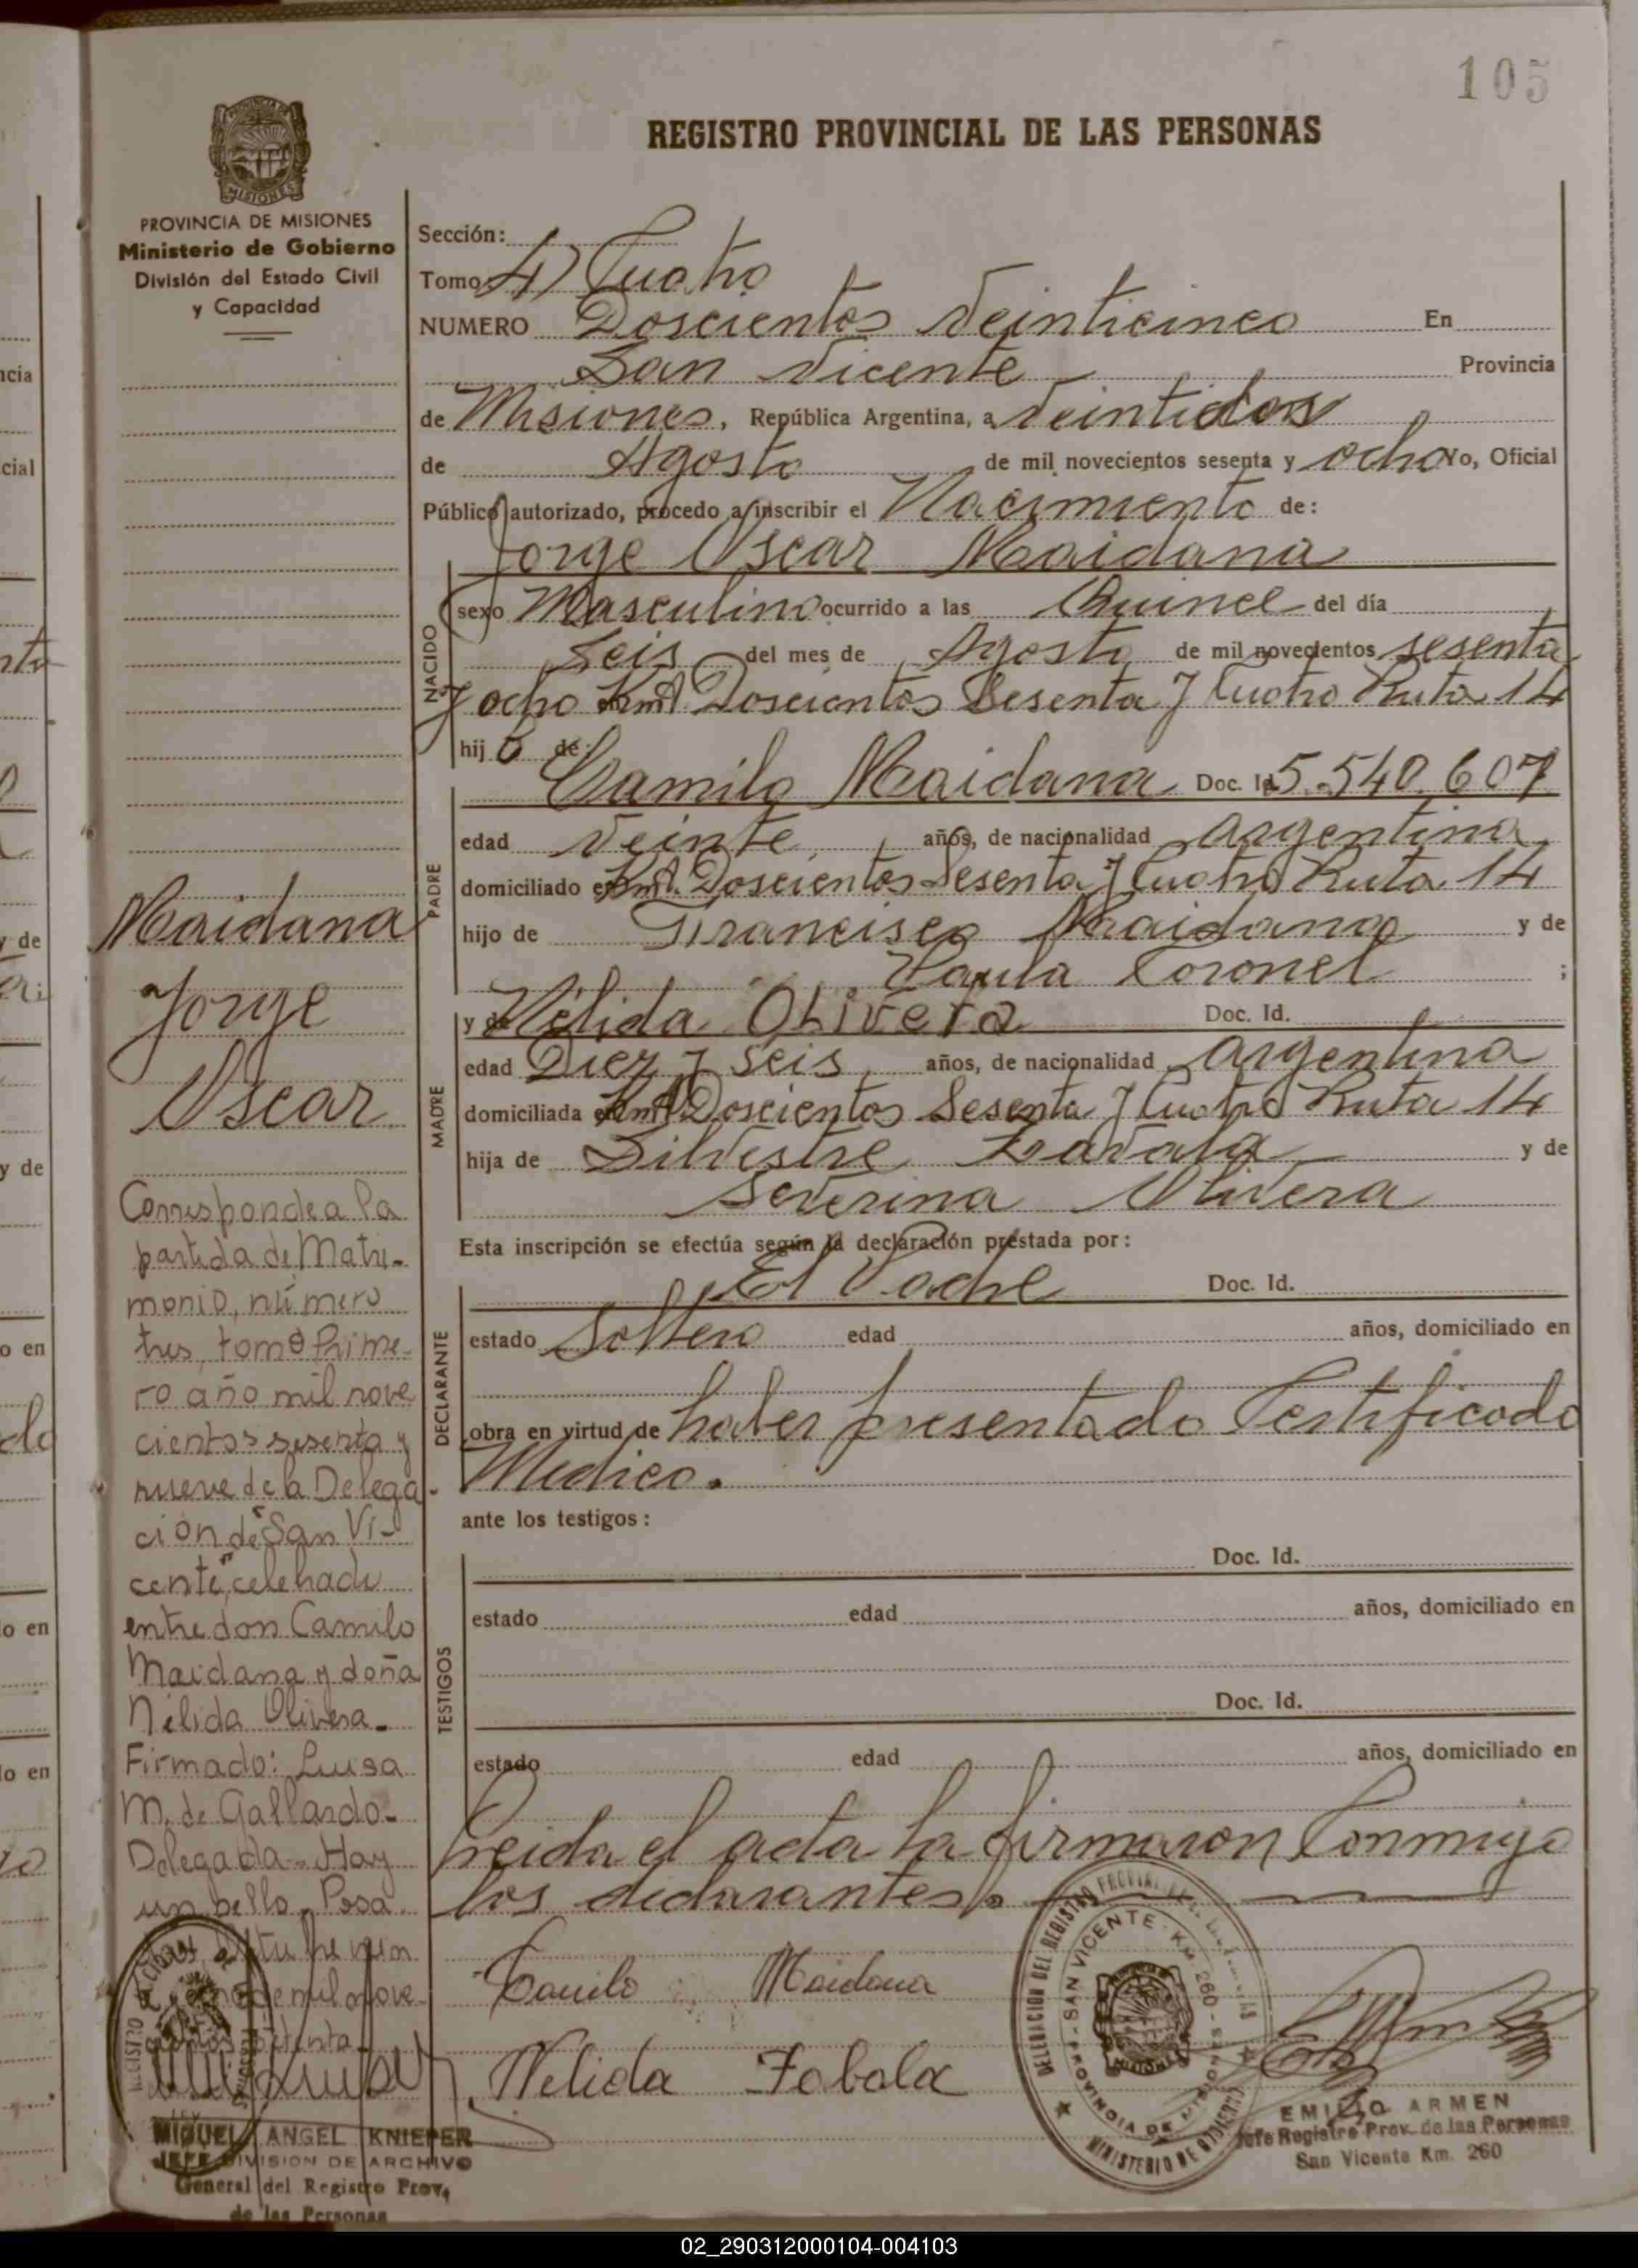 105
REGISTRO PROVINCIAL DE LAS PERSONAS
MISIONES
PROVINCIA DE MISIONES
Ministerio de Gobierno
División del Estado Civil
y Capacidad
Sección:
Tomo: 4) Cuatro
NUMERO Doscientos Veinticinco En
San Vicente Provincia
de Misiones, República Argentina, a Veintidos
de Agosto de mil novecientos sesenta y ocho Yo, Oficial
Público autorizado, procedo a inscribir el Nacimiento de:
Jorge Oscar Maidana
NACIDO
sexo Masculino ocurrido a las Quince del día
Seis del mes de Agosto de mil novecientos sesenta
y ocho Doscientos Sesenta y Cuatro Ruta 14
hijo de:
Camilo Maidana Doc. Id. 5.540.607
PADRE
edad Veinte años, de nacionalidad Argentina
domiciliado en Doscientos Sesenta y Cuatro Ruta 14
hijo de Francisco Maidana y de
Paula Coronel ;
MADRE
y de Nélida Olivera Doc. Id.
edad Diez y Seis años, de nacionalidad Argentina
domiciliada en Doscientos Sesenta y Cuatro Ruta 14
hija de Silvestre Zavala y de
Severina Olivera
Esta inscripción se efectúa según la declaración prestada por:
DECLARANTE
El Padre Doc. Id.
estado Soltero edad años, domiciliado en
obra en virtud de haber presentado Certificado
Medico.
ante los testigos:
TESTIGOS
Doc. Id.
estado edad años, domiciliado en
Doc. Id.
estado edad años, domiciliado en
Leida el acta la firmaron Conmigo
los declarantes.
Camilo Maidana
Nelida Zabala
DELEGACION DEL REGISTRO
SAN VICENTE - KM. 260
PROVINCIA DE MISIONES
MINISTERIO DE GOBIERNO
MISIONES
EMILIO ARMEN
Jefe Registro Prov. de las Personas
San Vicente Km. 260
Maidana
Jorge
Oscar
Corresponde a la
partida de Matri-
monio, número
tres, tomo Prime-
ro año mil nove
cientos sesenta y
nueve de la Delega-
ción de "San Vi-
cente", celebrado
entre don Camilo
Maidana y doña
Nélida Olivera.-
Firmado: Luisa
M. de Gallardo-
Delegada- Hay
un sello. Posa
de mil nove
setenta
MIGUEL ANGEL KNIEPER
JEFE DIVISION DE ARCHIVO
General del Registro Prov.
de las Personas
ncia
cial
y de
y de
o en
lo en
lo en
02_290312000104-004103